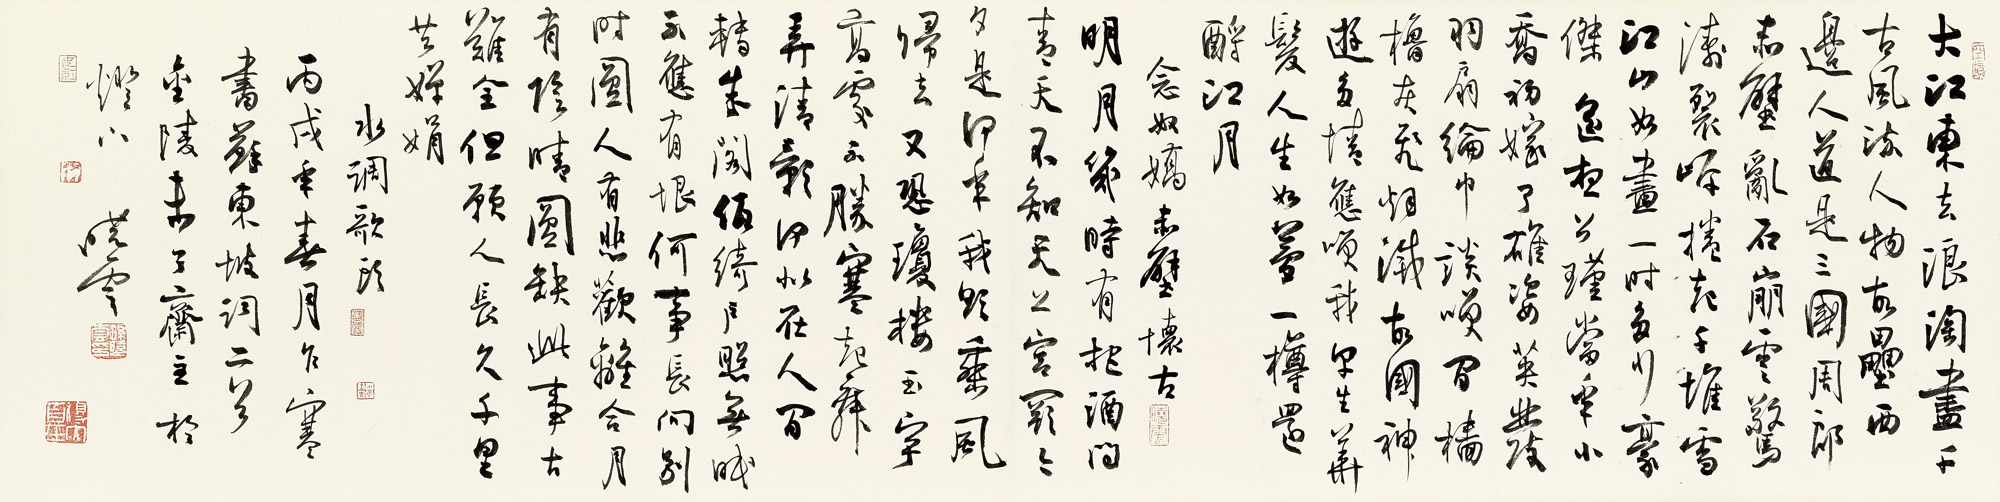 大江東去浪淘盡千
古風流人物故壘西
邊人道是三國周郎
赤壁亂石崩雲驚
濤裂岸捲起千堆雪
江山如畫一時多少豪
傑遙想公瑾當年小
喬初嫁了雄姿英發
羽扇綸巾談笑間檣
櫓灰飛烟滅故國神
遊多情應笑我早生華
髮人生如夢一樽還
酹江月
念奴嬌赤壁懷古
明月幾時有把酒問
青天不知天上宮闕今
夕是何年我欲乘風
歸去又恐瓊樓玉宇
高處不勝寒起舞
弄清影何似在人間
轉朱閣低綺戶照無眠
不應有恨何事長向別
時圓人有悲歡離合月
有陰晴圓缺此事古
難全但願人長久千里
共嬋娟
水調歌頭
丙戌年春月乍寒
書蘇東坡詞二首
金陵耒子齋主於
燈下 曉雲